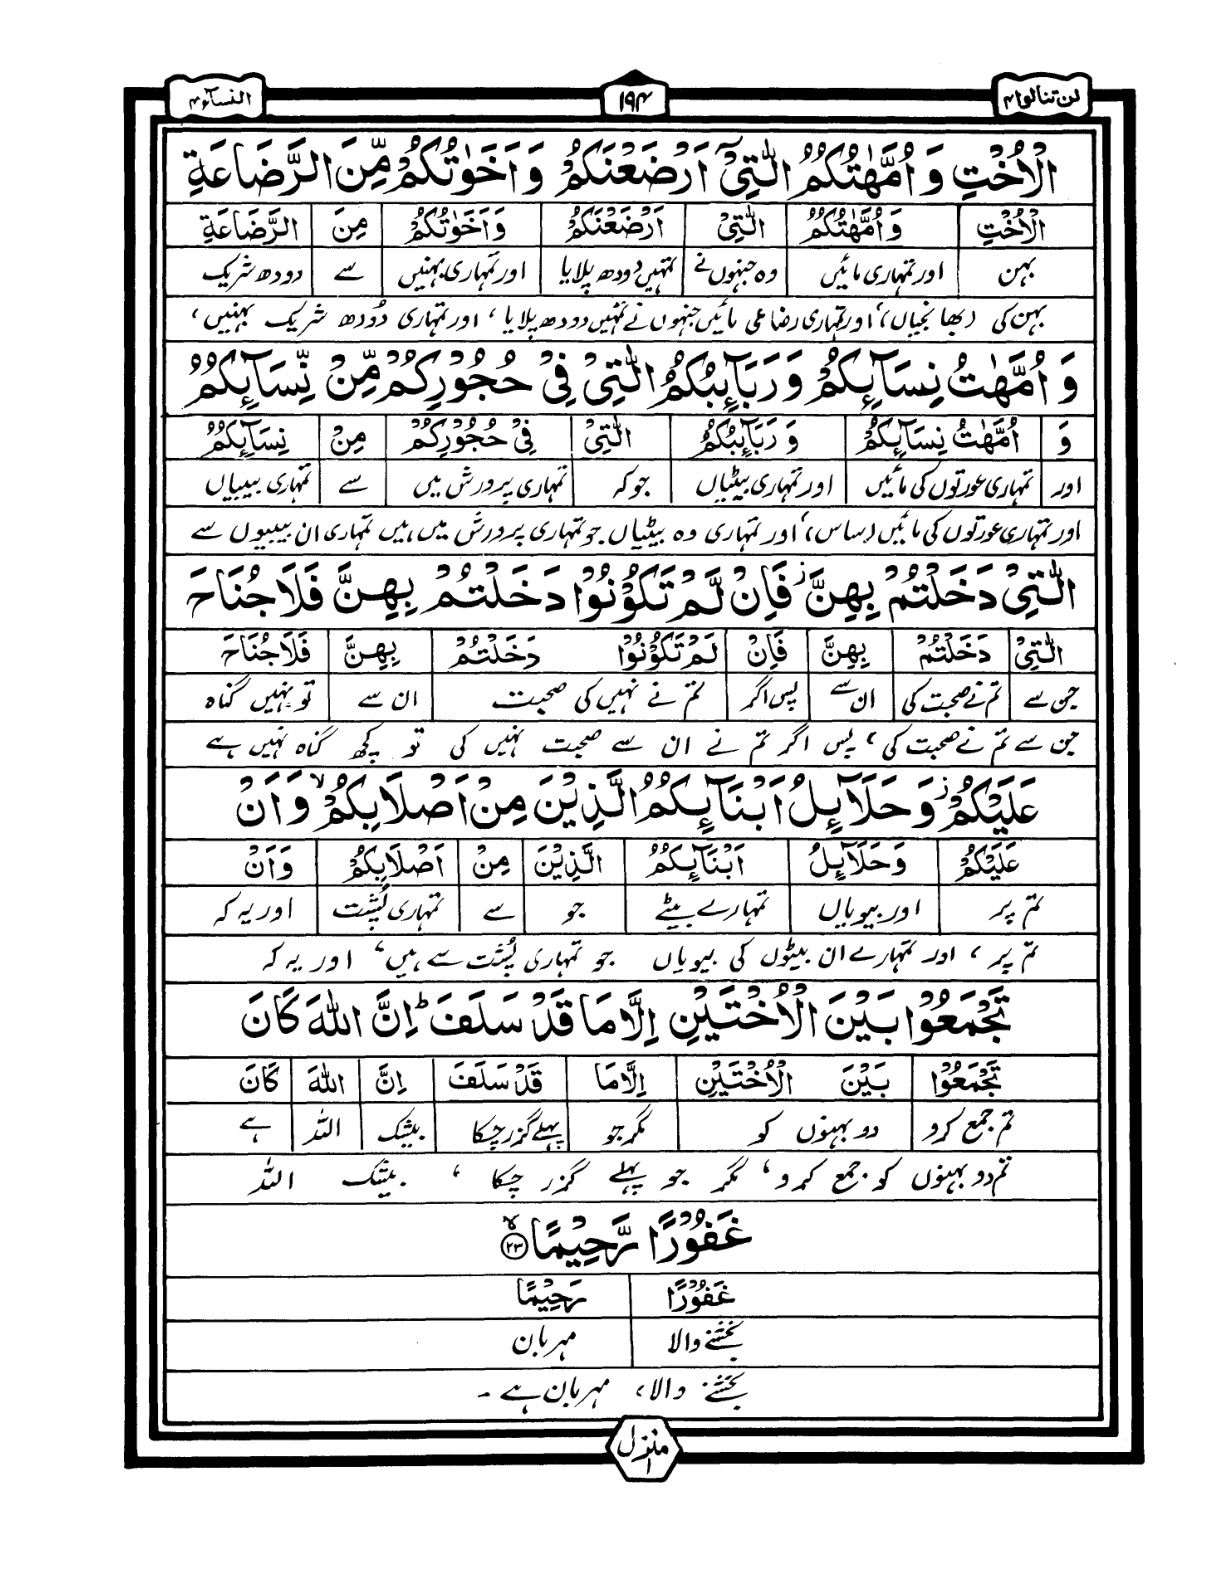 لن تنالوا ۴ ۱۹۴ النسآء ۴
الْاُخْتِ وَ اُمَّهٰتُكُمُ الّٰتِیْۤ اَرْضَعْنَكُمْ وَ اَخَوٰتُكُمْ مِّنَ الرَّضَاعَةِ
الْاُخْتِ وَ اُمَّهٰتُكُمُ الّٰتِیْۤ اَرْضَعْنَكُمْ وَ اَخَوٰتُكُمْ مِنَ الرَّضَاعَةِ
بہن اور تمہاری مائیں وہ جنہوں نے تمہیں دودھ پلایا اور تمہاری بہنیں سے دودھ شریک
بہن کی (بھانجیاں)، اور تمہاری رضاعی مائیں جنہوں نے تمہیں دودھ پلایا، اور تمہاری دُودھ شریک بہنیں،
وَ اُمَّهٰتُ نِسَآىِٕكُمْ وَ رَبَآىِٕبُكُمُ الّٰتِیْ فِیْ حُجُوْرِكُمْ مِّنْ نِّسَآىِٕكُمُ
وَ اُمَّهٰتُ نِسَآىِٕكُمْ وَ رَبَآىِٕبُكُمُ الّٰتِیْ فِیْ حُجُوْرِكُمْ مِنْ نِسَآىِٕكُمُ
اور تمہاری عورتوں کی مائیں اور تمہاری بیٹیاں جو کہ تمہاری پرورش میں سے تمہاری بیبیاں
اور تمہاری عورتوں کی مائیں (ساس)، اور تمہاری وہ بیٹیاں جو تمہاری پرورش میں ہیں تمہاری ان بیبیوں سے
الّٰتِیْ دَخَلْتُمْ بِهِنَّ ز فَاِنْ لَّمْ تَكُوْنُوْا دَخَلْتُمْ بِهِنَّ فَلَا جُنَاحَ
الّٰتِیْ دَخَلْتُمْ بِهِنَّ فَاِنْ لَمْ تَكُوْنُوْا دَخَلْتُمْ بِهِنَّ فَلَا جُنَاحَ
جن سے تم نے صحبت کی ان سے پس اگر تم نے نہیں کی صحبت ان سے تو نہیں گناہ
جن سے تم نے صحبت کی، پس اگر تم نے ان سے صحبت نہیں کی تو کچھ گناہ نہیں ہے
عَلَیْكُمْ ز وَ حَلَآىِٕلُ اَبْنَآىِٕكُمُ الَّذِیْنَ مِنْ اَصْلَابِكُمْ ۙ وَ اَنْ
عَلَیْكُمْ وَ حَلَآىِٕلُ اَبْنَآىِٕكُمُ الَّذِیْنَ مِنْ اَصْلَابِكُمْ وَ اَنْ
تم پر اور بیویاں تمہارے بیٹے جو سے تمہاری پُشت اور یہ کہ
تم پر، اور تمہارے ان بیٹوں کی بیویاں جو تمہاری پُشت سے ہیں، اور یہ کہ
تَجْمَعُوْا بَیْنَ الْاُخْتَیْنِ اِلَّا مَا قَدْ سَلَفَ ؕ اِنَّ اللّٰهَ كَانَ
تَجْمَعُوْا بَیْنَ الْاُخْتَیْنِ اِلَّا مَا قَدْ سَلَفَ اِنَّ اللّٰهَ كَانَ
تم جمع کرو دو بہنوں کو مگر جو پہلے گزر چکا بیشک اللہ ہے
تم دو بہنوں کو جمع کرو، مگر جو پہلے گزر چکا، بیشک اللہ
غَفُوْرًا رَّحِیْمًا ۙ ۲۳
غَفُوْرًا رَحِیْمًا
بخشنے والا مہربان
بخشنے والا، مہربان ہے ۔
منزل ۱